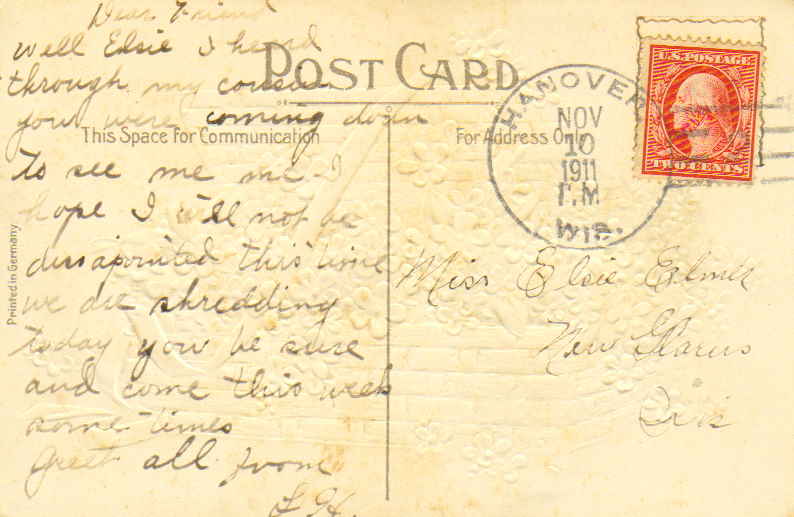 Dear Friend
Well Elsie I heard
through my cousin
you were coming down
to see me me I
hope I will not be
dissapointed this time
we are shredding
today you be sure
and come this week
some times
greet all from
L H.
POST CARD
This Space for Communication
For Address Only
Printed in Germany
HANOVER
NOV
10
1911
P.M
WIS.
U.S. POSTAGE
TWO CENTS
Miss Elsie Elmer
New Glarus
Wis